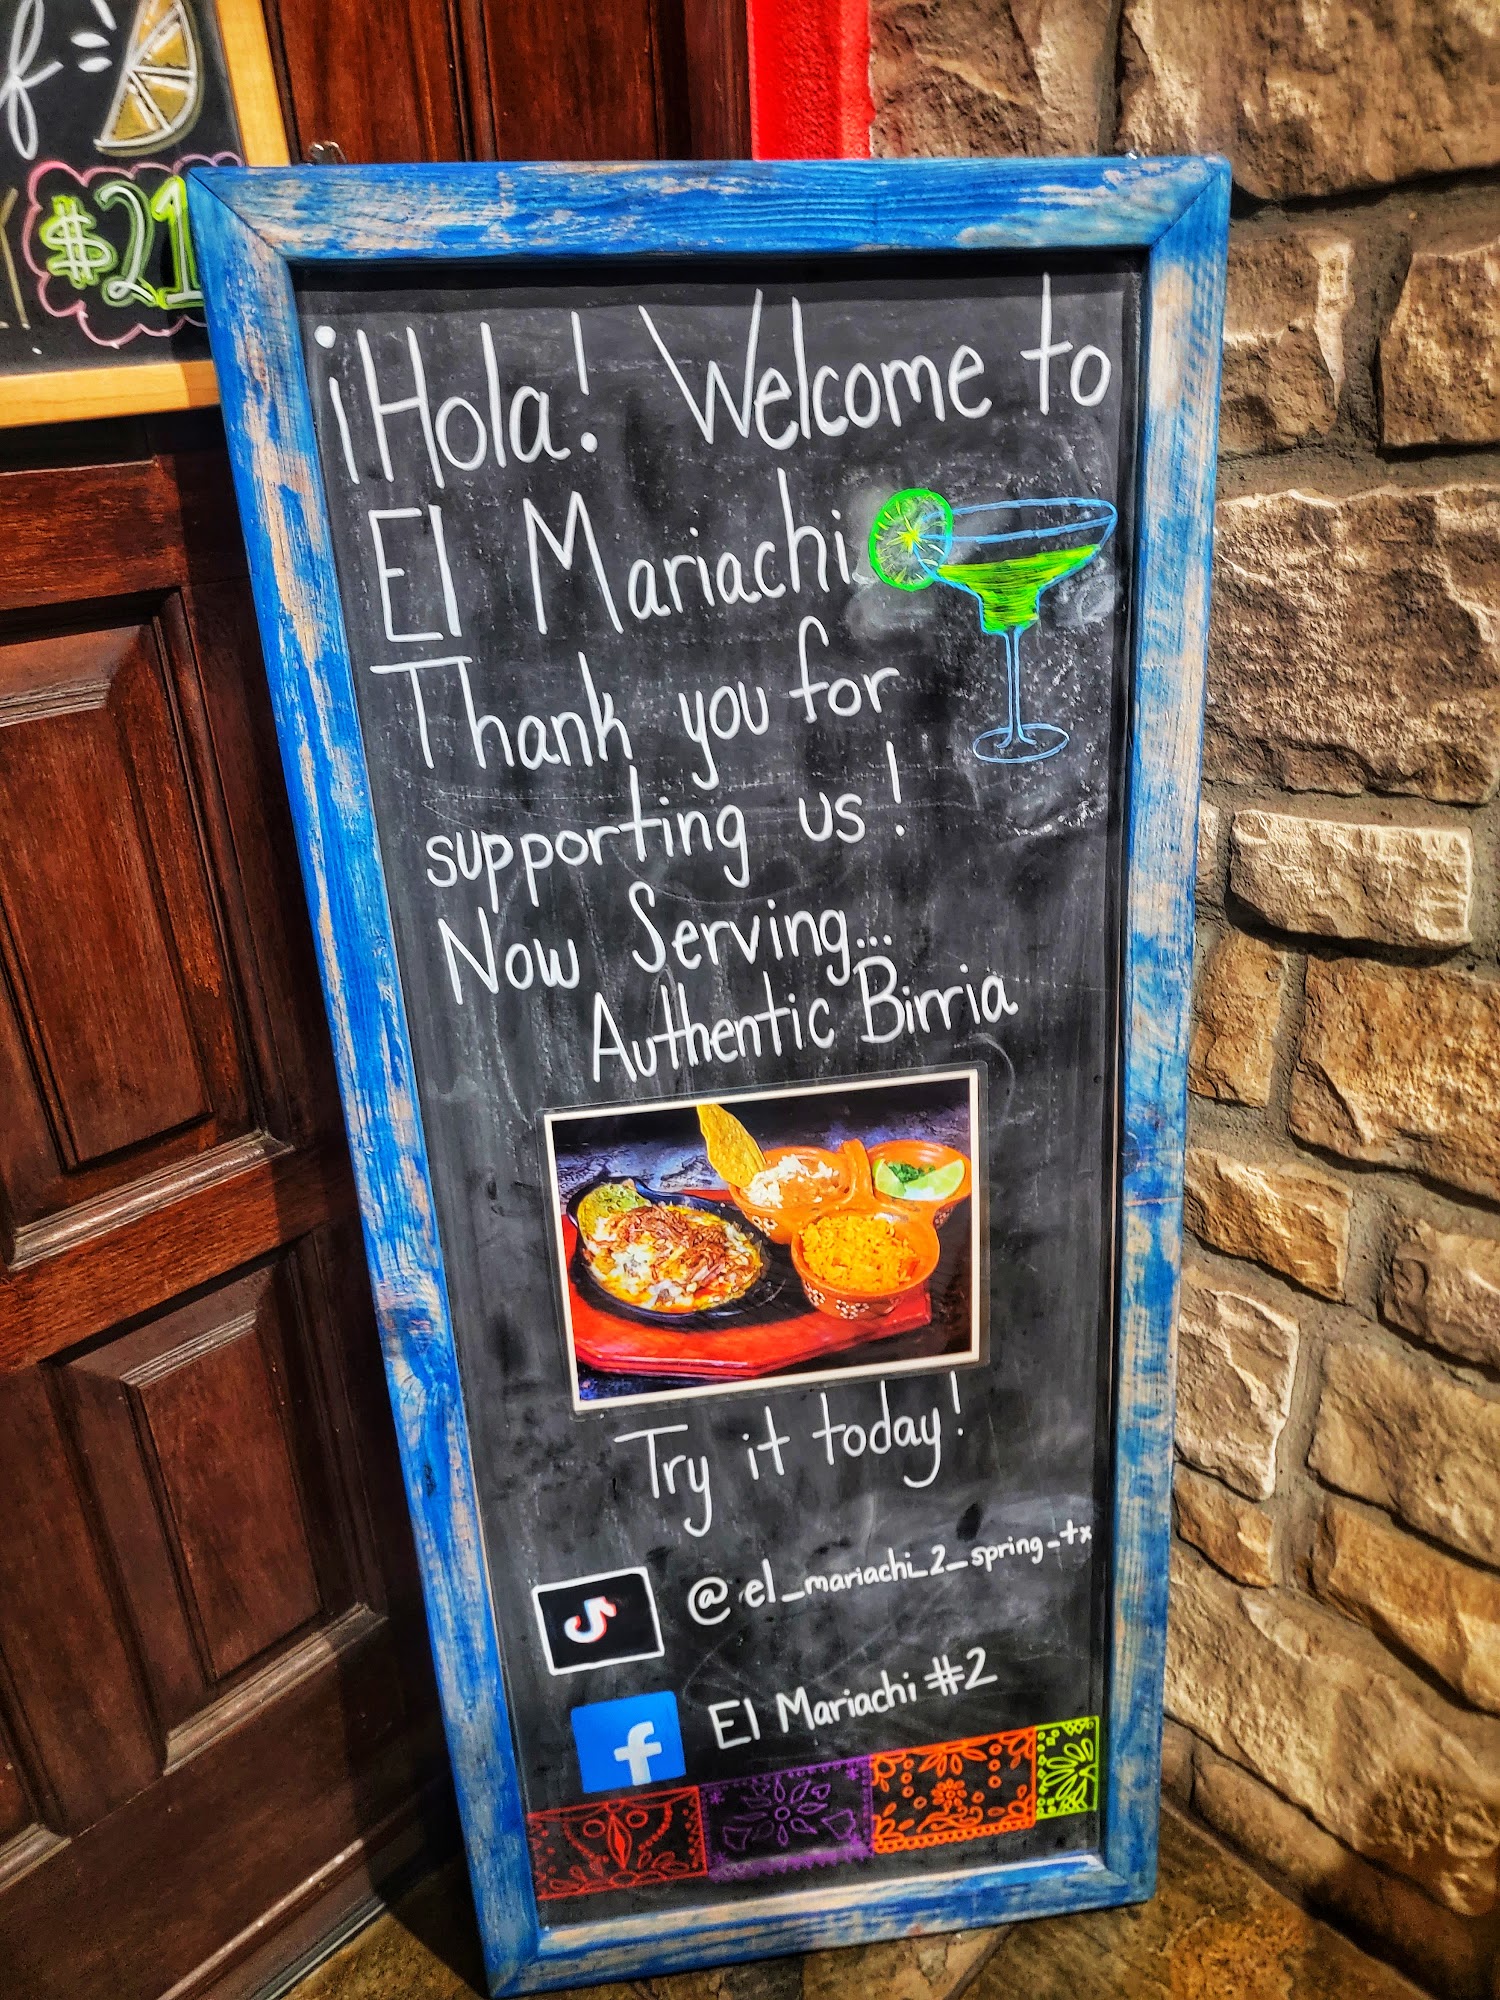 $21
¡Hola! Welcome to
El Mariachi
Thank you for
supporting us!
Now Serving...
Authentic Birria
Try it today!
@el_mariachi_2_spring_tx
f
El Mariachi #2